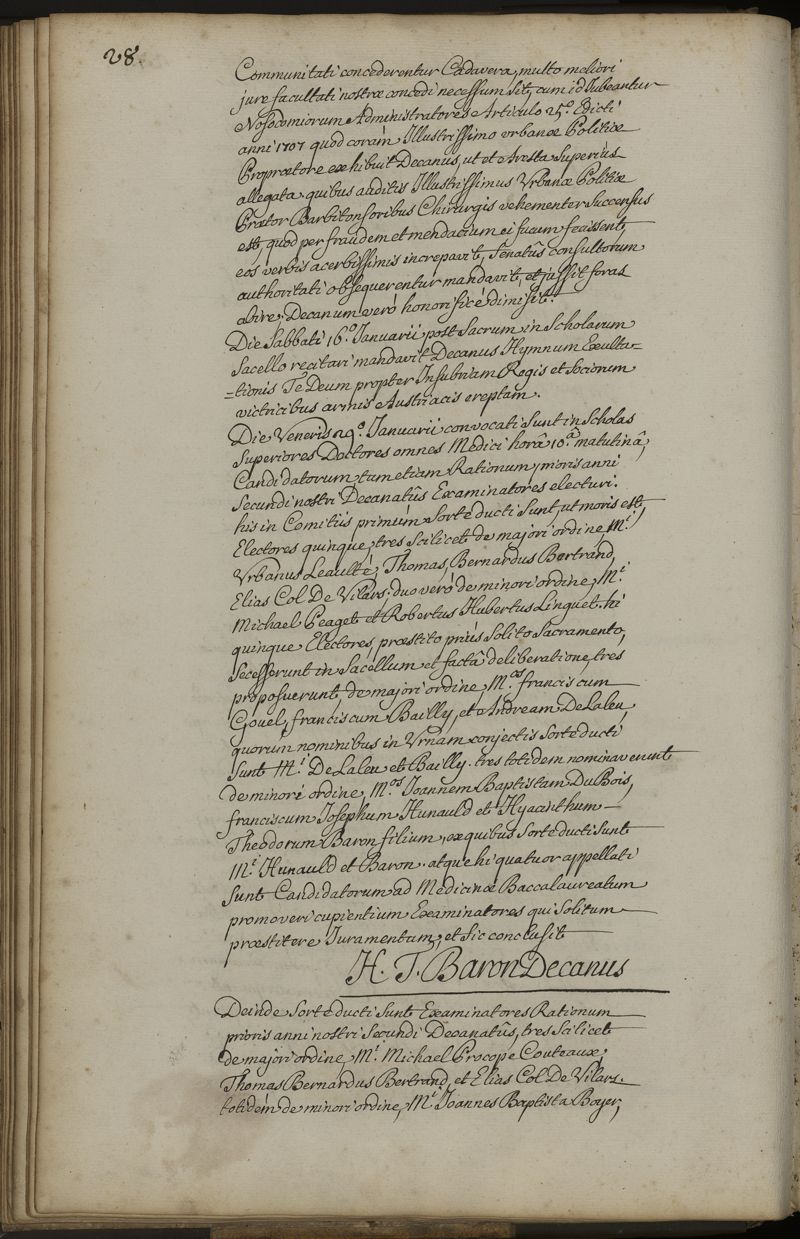 28.
Communitati concederentur Cadavera, multo meliori
jure facultati nostræ concedi necessum sit, cum id Jubeantur
Nosocomiorum Administratores Articulo 25.º Edicti
anni 1707 quod coram Illustrissimo urbanæ Politiæ
Proprætore exhibuit Decanus, ut et Aresta Superius
allegata. quibus auditis Illustrissimus Urbanæ Politiæ
Prætor Barbitonsoribus Chirurgis vehementer Succensus
est, quod per fraudem et mendacium ei fucum fecissent,
eos verbis acerbissimis increpavit, Senatûs consultorum
authoritati obsequerentur mandavit, et jussit foras
abire; Decanum verò honorificè dimisit.
Die Sabbati 16.º Januarii post Sacrum in Scholarum
Sacello recitari mandavit Decanus Hymnum Exulta=
=tionis Te Deum propter Insubriam Regis et Sociorum
victricibus armis Austriacis ereptam.
Die Veneris 29.º Januarii convocati Sunt in Scholas
Superiores Doctores omnes Medici horâ 10.ª matutinâ,
Candidatorum tum etiam Rationum, prioris anni
Secundi nostri Decanatûs Examinatores electuri.
his in Comitiis primùm Sorte ducti Sunt, ut moris est,
Electores quinque, tres Scilicet de majori ordine, M.i
Urbanus Leaulté, Thomas, Bernardus Bertrand,
Elias Col De Vilars; duo verò de minori ordine, M.i
Michael Peaget et Robertus Hubertus Linguet. hi
quinque Electores, præstito priùs Solito Sacramento,
Secesserunt in Sacellum et factâ deliberatione, tres
proposuerunt, de majori ordine, M.os franciscum
Gouel, franciscum Bailly, et Andream De Laleu,
quorum nominibus in Urnam conjectis Sorte ducti
Sunt M.i De Laleu et Bailly. tres totidem nominaverunt
de minori ordine, M.os Joannem Baptistam Du Bois,
franciscum Josephum Hunauld et Hyacinthum
Theodorum Baron filium, ex quibus Sorte ducti Sunt
M.i Hunauld et Baron. atque hi quatuor appellati
Sunt Candidatorum ad Medicinæ Baccalaureatum
promoveri cupientium Examinatores qui Solitum
præstitere Juramentum, et Sic conclusit
H. T. Baron Decanus
Deinde Sorte ducti Sunt Examinatores Rationum
prioris anni nostri Secundi Decanatûs, tres Scilicet
de majori ordine, M.i Michael Procope Couteaux,
Thomas Bernardus Bertrand, et Elias Col De Vilars.
totidem de minori ordine, M.i Joannes Baptista Boyer,